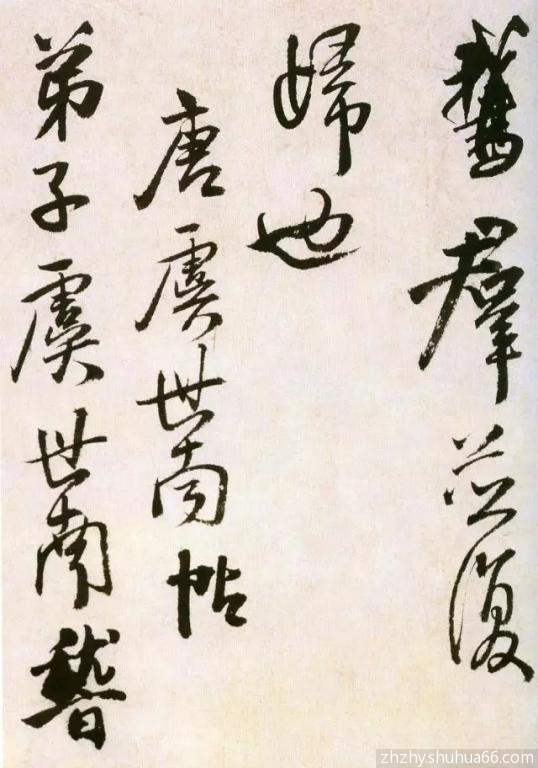 鵞羣並復
歸也
唐虞世南帖
弟子虞世南稽
zhzhy.shuhua66.com